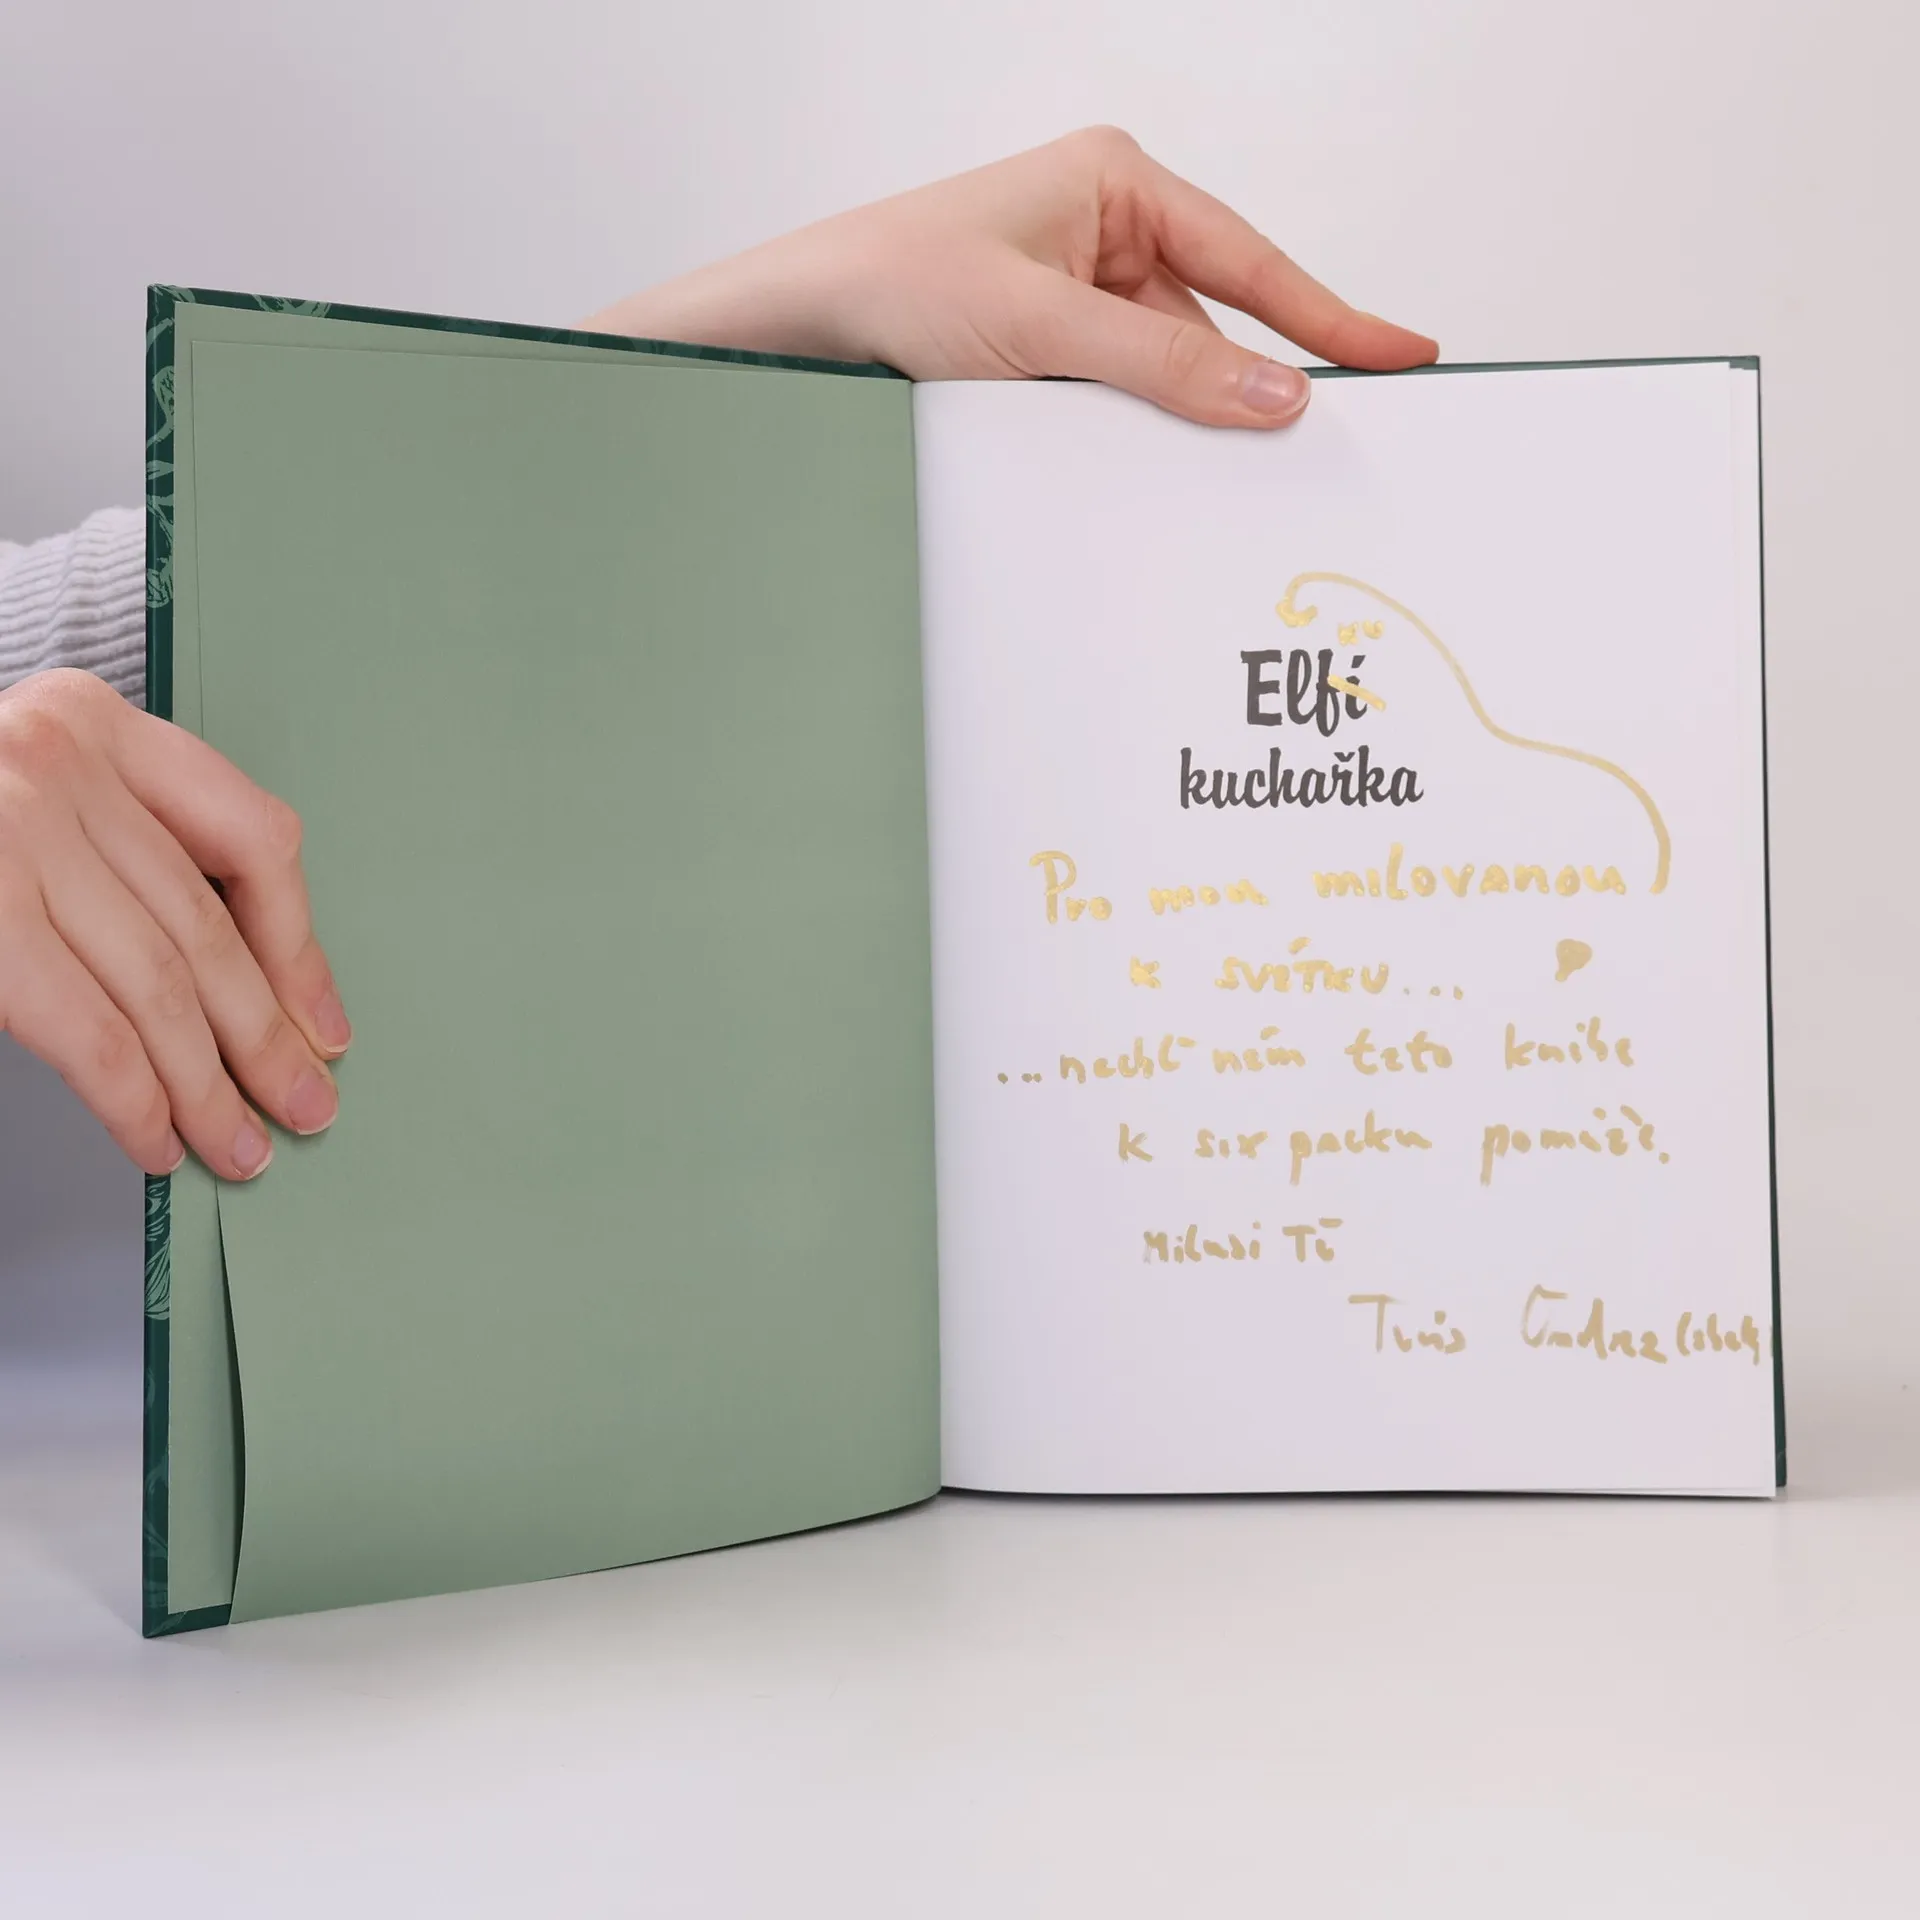 Elfí
kuchařka
Pro mou milovanou
k svátku...
...nechť nám tato kniha
k six packu pomůže.
Miluji Tě
Ondra